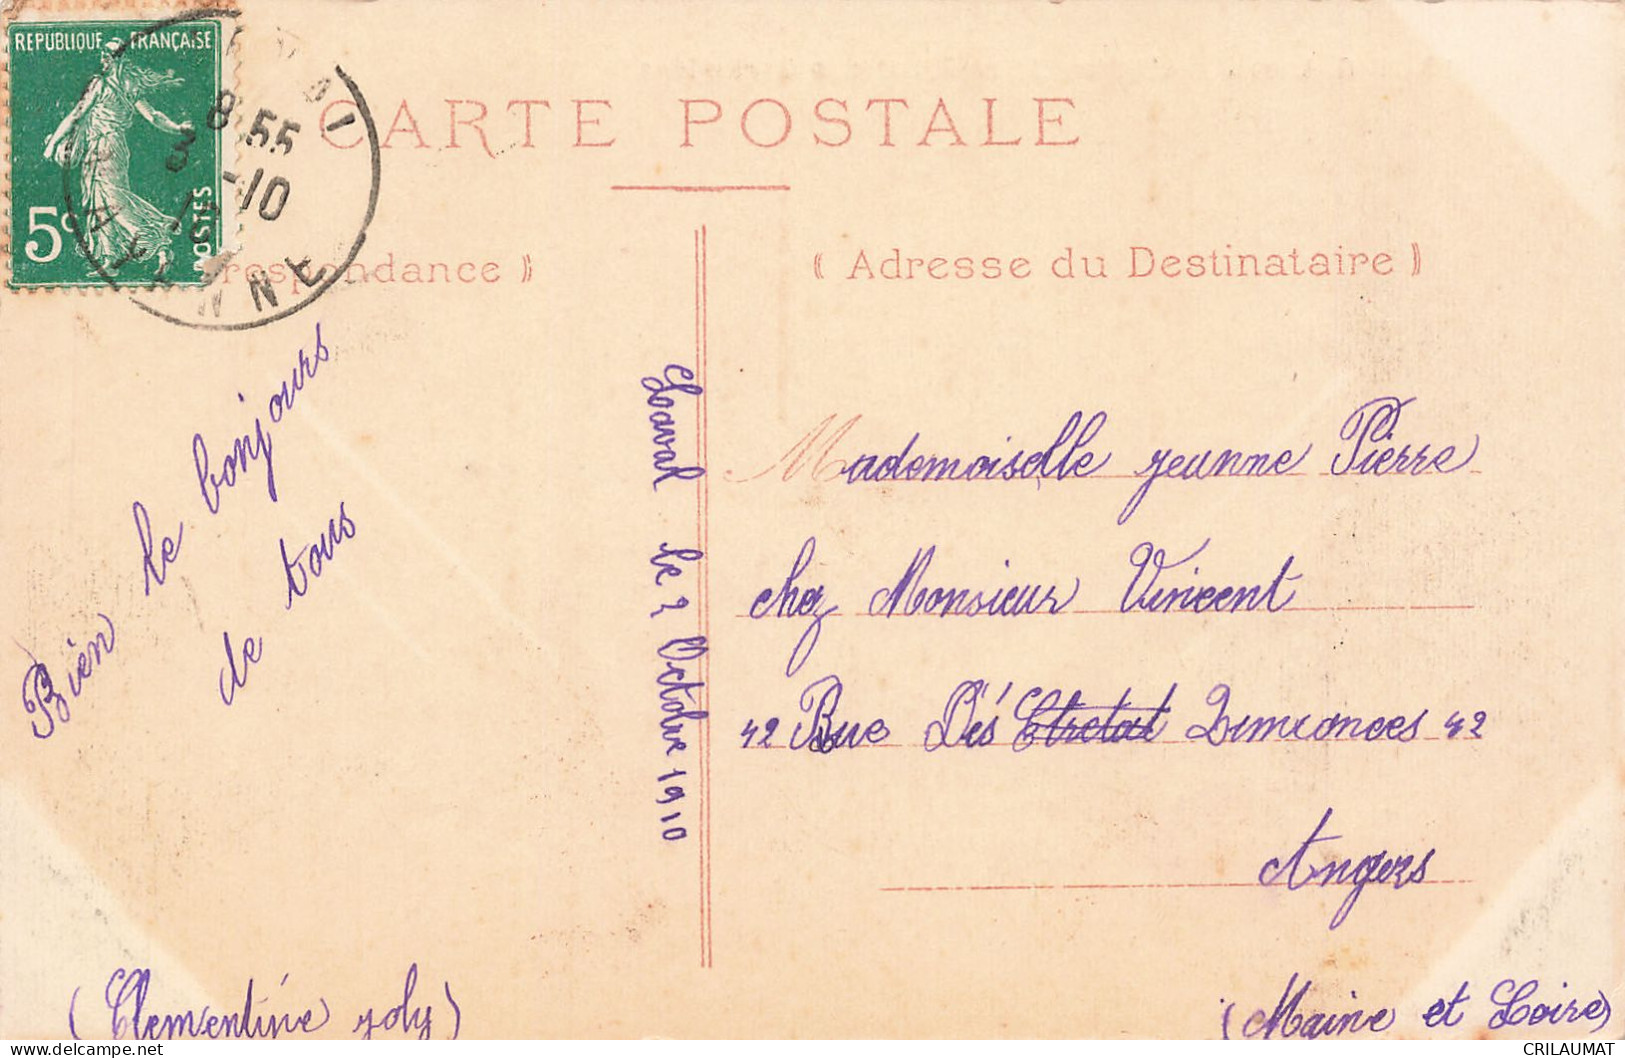 REPUBLIQUE FRANÇAISE
5c
POSTES
8.55
3-10
10
CARTE POSTALE
respondance )
( Adresse du Destinataire )
Bien le bonjours
de tous
Laval le 2 Octobre 1910
Mademoiselle jeanne Pierre
chez Monsieur Vincent
42 Rue Dés
42
Angers
(Clementine joly)
(Maine et Loire)
CRILAUMAT